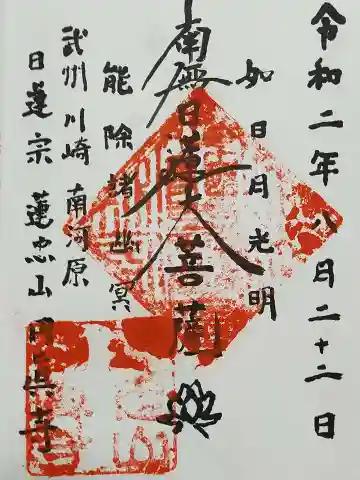 令和二年八日二十二日
如日月光明
南無日蓮大菩薩
能除諸幽冥
武州川崎南河原
日蓮宗 蓮忠山 日眞寺